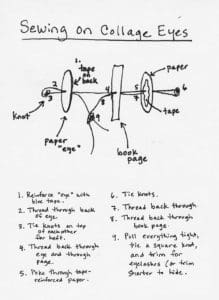 Sewing on Collage Eyes
1.
tape
on
back
paper
2
4
5
6
3
8
7
knot
9
tape
paper
"eye"
book
page
1. Reinforce "eye" with
blue tape.
2. Thread through back
of eye.
3. Tie knots on top
of each other
for heft.
4. Thread back through
eye and through
page.
5. Poke through tape-
reinforced paper.
6. Tie knots.
7. Thread back through.
8. Thread back through
book page.
9. Pull everything tight,
tie a square knot,
and trim for
eyelashes (or trim
shorter to hide.